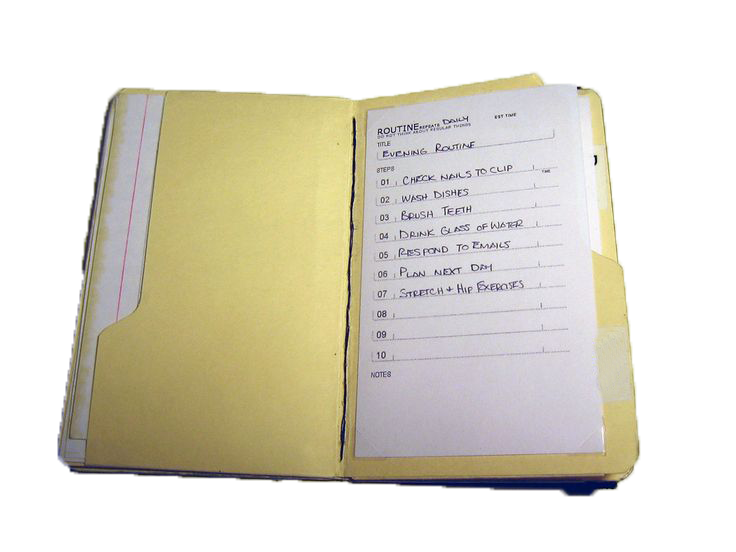 ROUTINE REPEATS DAILY EST TIME
DO NOT THINK ABOUT REGULAR THINGS
TITLE
EVENING ROUTINE
STEPS
01 CHECK NAILS TO CLIP TIME
02 WASH DISHES
03 BRUSH TEETH
04 DRINK GLASS OF WATER
05 RESPOND TO EMAILS
06 PLAN NEXT DAY
07 STRETCH + HIP EXERCISES
08
09
10
NOTES